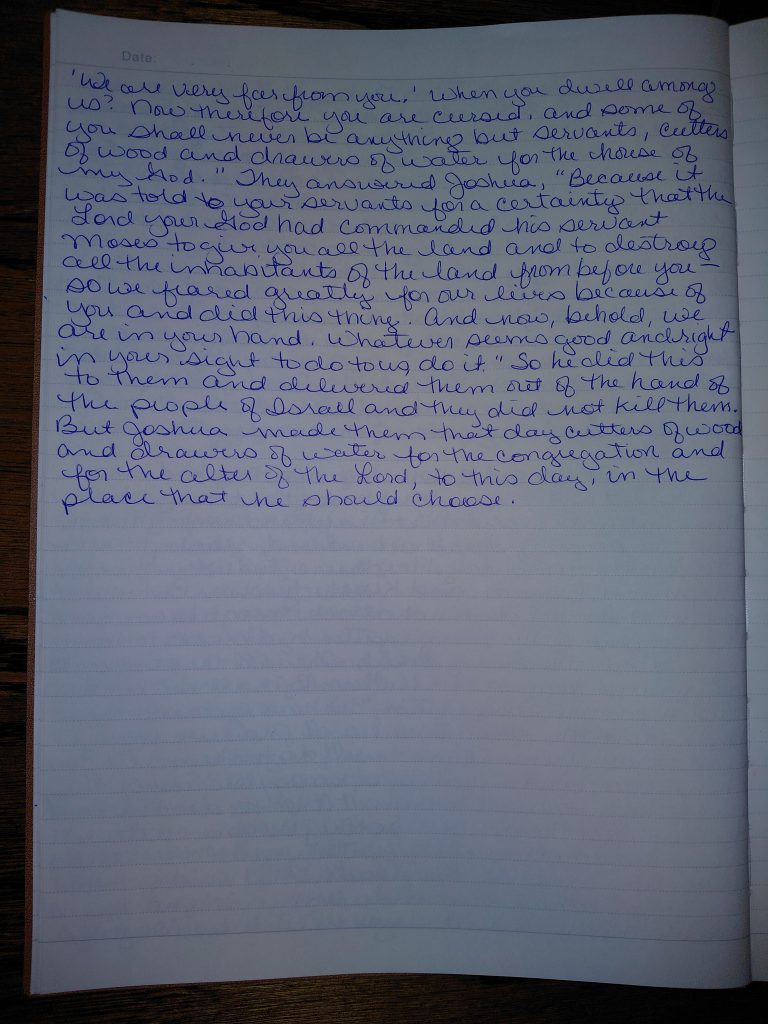 Date:
'We are very far from you,' when you dwell among
us? Now therefore you are cursed, and some of
you shall never be anything but servants, cutters
of wood and drawers of water for the house of
my God." They answered Joshua, "Because it
was told to your servants for a certainty that the
Lord your God had commanded his servant
Moses to give you all the land and to destroy
all the inhabitants of the land from before you—
so we feared greatly for our lives because of
you and did this thing. And now, behold, we
are in your hand. Whatever seems good and right
in your sight to do to us, do it." So he did this
to them and delivered them out of the hand of
the people of Israel and they did not kill them.
But Joshua made them that day cutters of wood
and drawers of water for the congregation and
for the alter of the Lord, to this day, in the
place that he should choose.